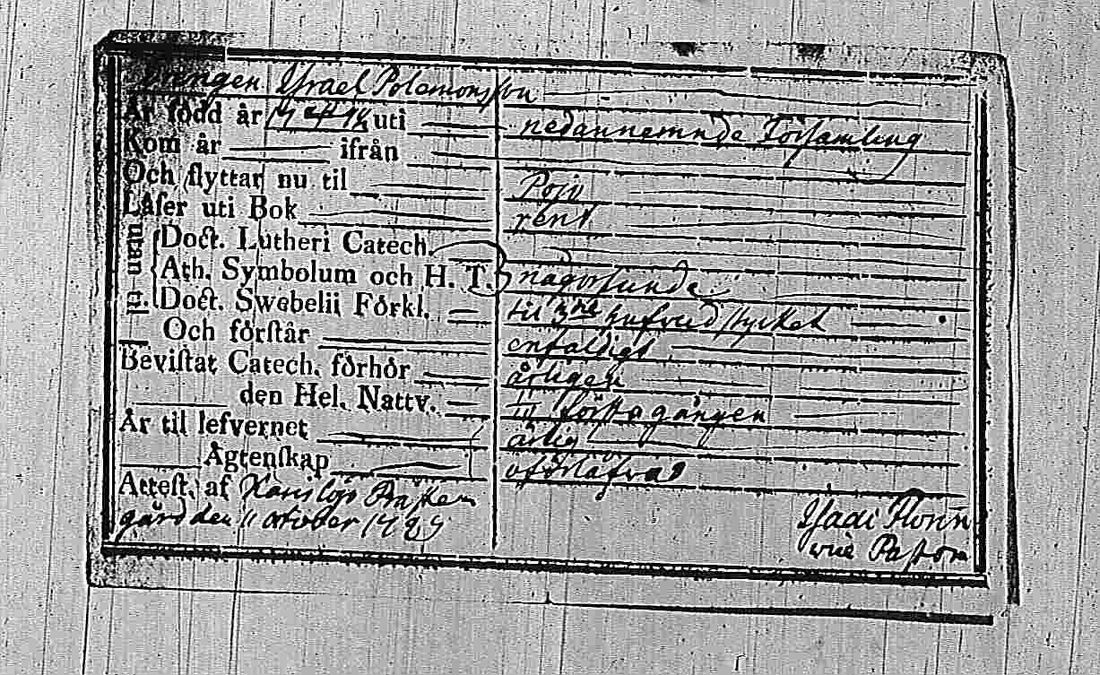 Drengen Israel Polemonsson
Är född år 1748 uti nedannemnde Församling
Kom år ifrån
Och flyttar nu til Pojo
Läser uti Bok rent
utan
Doct. Lutheri Catech.
Ath. Symbolum och H. T. någorlunda
Doct. Swebelii Förkl. til 3ne hufvudstycket
Och förstår enfaldigt
Bevistat Catech. förhör årligen
den Hel. Nattv. första gången
Är til lefvernet ärlig
Ägtenskap
Attest. af Karislojo Prästen
gård den 11 october
Pastor